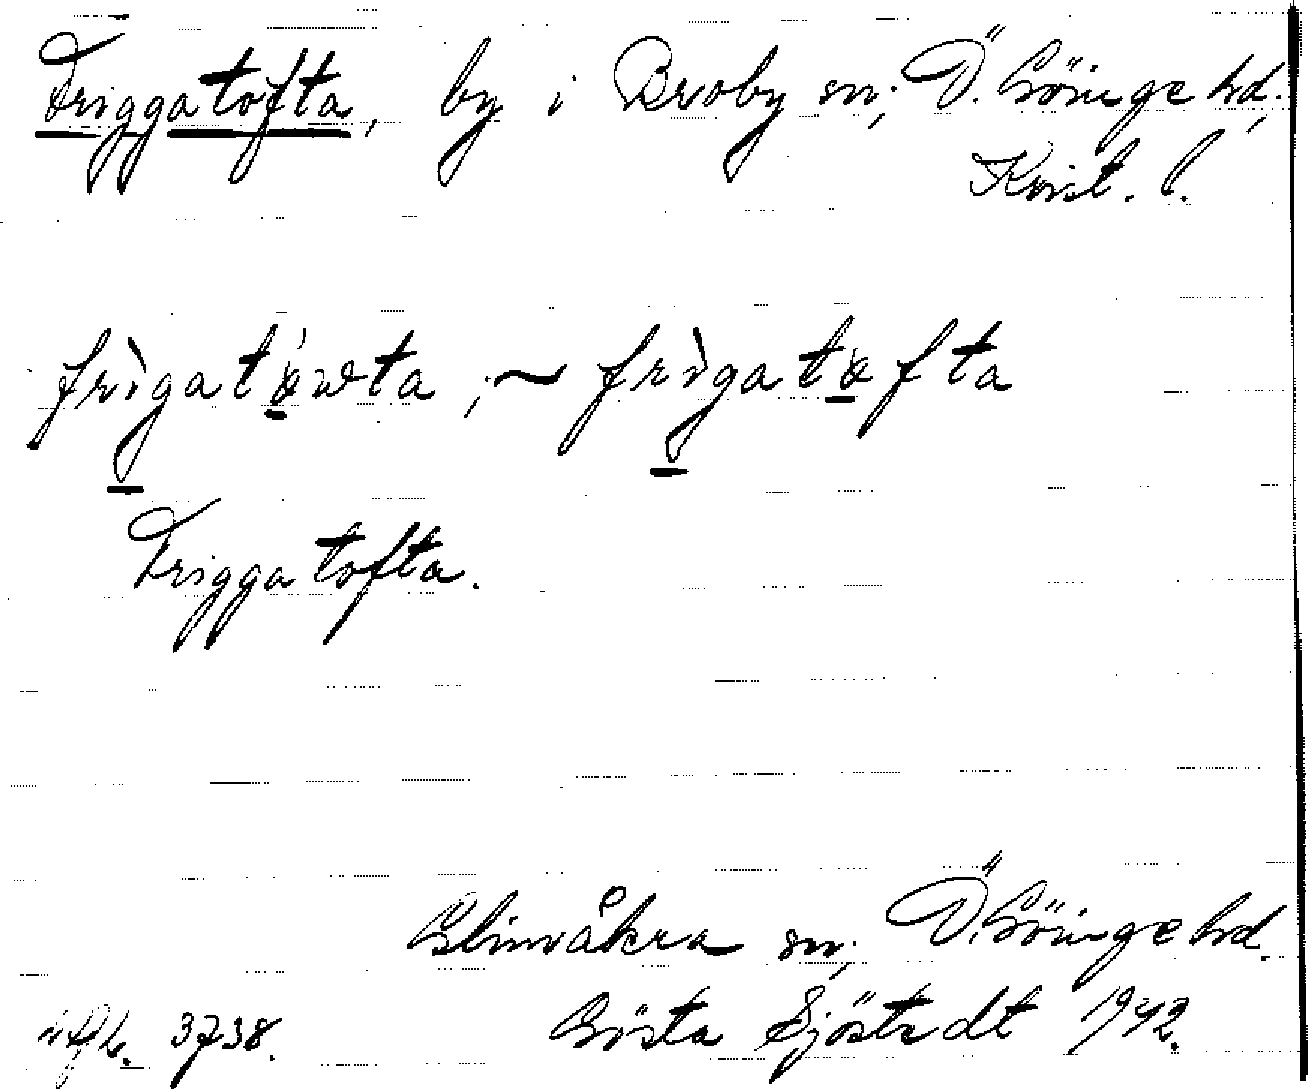 Friggatofta, by i Broby sn, Ö. Göinge hd,
Krist. l.
frìgatáwta, ~ frìgatáfta
Friggatofta.
Glimåkra sn, Ö. Göinge hd.
3738. Gösta Sjöstedt 1942.